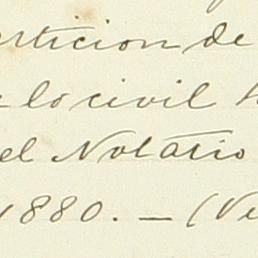 erticion de
lo civil
el Notario
1880. — (Ve